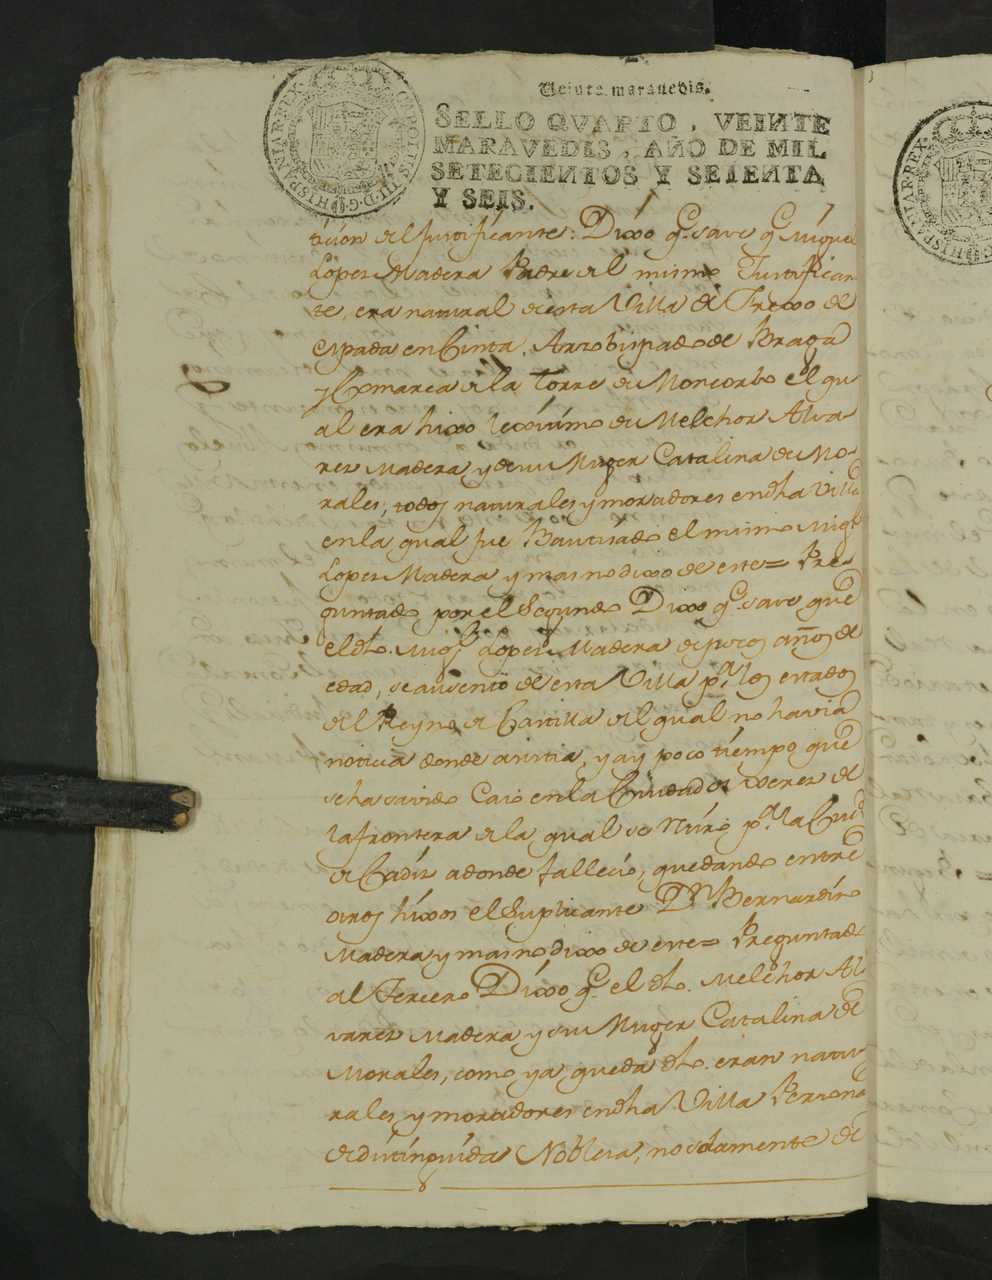 Veinte maravedis.
SELLO QVARTO, VEINTE
MARAVEDIS, AÑO DE MIL
SETECIENTOS Y SETENTA
Y SEIS.
CAROLUS III. D. G. HISPANIAR. REX
ticion del justificante: Dixo q.e save q.e Miguel
Lopez Madera Padre del mismo Justifican
te, era natural de esta Villa de Frexo de
espada en Cinta, Arzobispado de Braga
y Comarca de la Torre de Moncorbo el qu
al era hixo lexitimo de Melchor Alva
rez Madera y de su Muger Catalina de Mo-
rales, todos naturales y moradores en dha Villa
en la qual fue Bautizado el mismo Mig.l
Lopez Madera y mas no dixo de este = Pre-
guntado por el Segundo Dixo q.e save que
el dho. Mig.l Lopez Madera de pocos años de
edad, se ausento de esta Villa p.a los estados
del Reyno de Castilla del qual no havia
noticia donde asistia, y ay poco tiempo que
se ha savido Caso en la Ciudad de Xerez de
la frontera de la qual se Núro p.a la Ciu.d
de Cadiz adonde fallecio, quedando entre
otros hixos el Suplicante D.n Bernardino
Madera y mas no dixo de este = Preguntado
al Tercero Dixo q.e el dho. Melchor Al
varez Madera y su Muger Catalina de
Morales, como ya queda dho. eran natu
rales y moradores en dha Villa Persona
de distinguida Nobleza, no solamente de